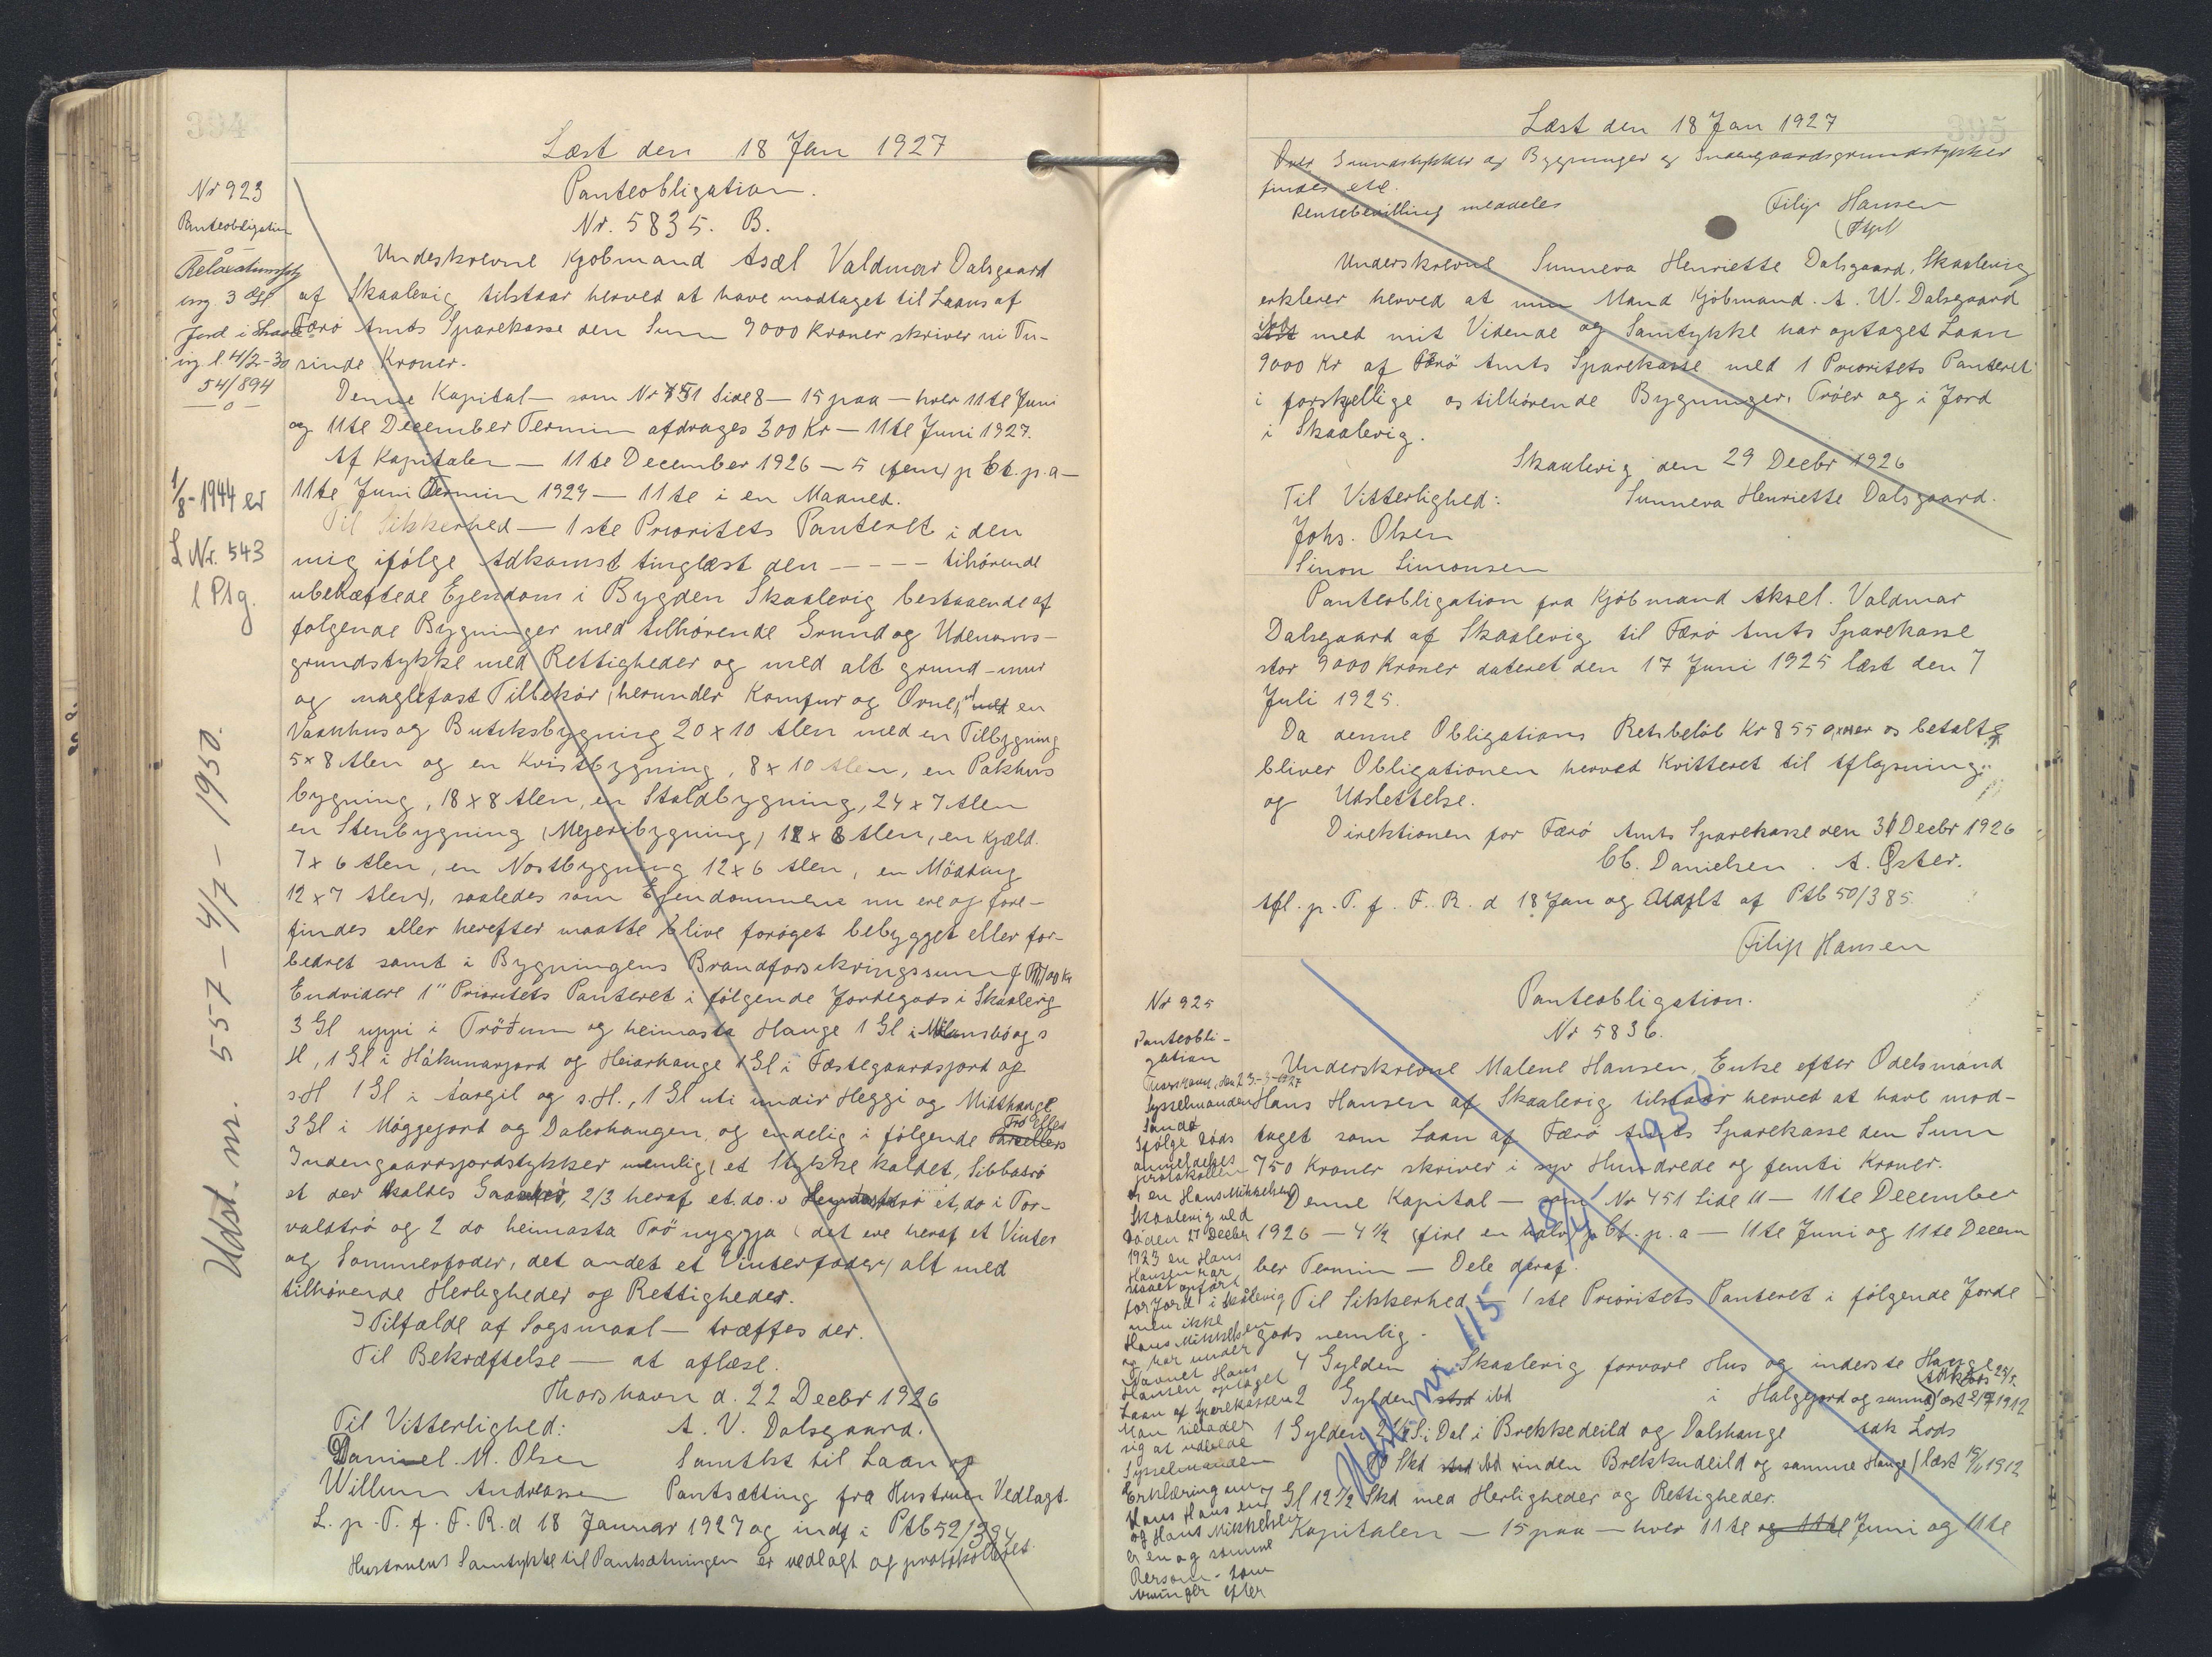 394
Læst den 18 Jan 1927
Nr 923
Panteobligation
Relaxationsfst
ing. 3 Gl
Jord i Skaale
ing. l 4/2-30
54/894
— o —
1/8-1944 er
L Nr. 543
l Ptg.
Udst. nr. 557 - 4/7 - 1950.
Panteobligation.
Nr. 5835. B.
Undeskrevne Kjøbmand Axel Valdmar Dalsgaard
af Skaalevig tilstaar herved at have modtaget til Laans af
Færø Amts Sparekasse den Sum 9000 Kroner skriver ni Tu-
sinde Kroner.
Denne Kapital — som Nr 451 Side 8 — 15 paa — hver 11te Juni
og 11te December Termin afdrages 300 Kr — 11te Juni 1927.
Af Kapitalen — 11te December 1926 — 5 (fem) p Ct. p. a —
11te Juni Termin 1927 — 11te i en Maaned.
Til Sikkerhed — 1ste Prioritets Panteret i den
mig ifølge Adkomst tinglæst den ----- tihørende
ubehæftede Ejendom i Bygden Skaalevig bestaaende af
følgende Bygninger med tilhørende Grund og Udenoms-
grundstykke med Rettigheder og med alt grund-mur
og naglefast Tilbehør (herunder Komfur og Ovne) en
Vaanhus og Butiksbygning 20 x 10 Alen med en Tilbygning
5 x 8 Alen og en Kvistbygning, 8 x 10 Alen, en Pakhus
bygning, 18 x 8 Alen, en Staldbygning, 24 x 7 Alen
en Stenbygning (Mejeribygning) 12 x 8 Alen, en Kjæld.
7 x 6 Alen, en Nostbygning 12 x 6 Alen, en Mödding
12 x 7 Alen), saaledes som Ejendommene nu ere og fore-
findes eller herefter maatte blive forøget bebygget eller for-
bedret samt i Bygningens Brandforsikringssum
Endvidere 1" Prioritets Panteret i følgende Jordegods i Skaalevig
3 Gl uppi i Tröðum og heimasta Hange 1 Gl i og s
H, 1 Gl i Hákunarjord og Heiarhange 1 Gl i Fæstegaardsjord og
s H 1 Gl i Áargil og s. H., 1 Gl uti undir Heggi og Midthange
3 Gl i Møggejord og Dalerhangen, og endelig i følgende
Indengaardsjordstykker nemlig et Stykke kaldet, Sibbatrø
et der kaldes 2/3 heraf et. do. et, do i Tor-
valdtrø og 2 do heimasta Trö nyggja (det ene heraf et Vinter
og Sommerfoder, det andet et Vinterfoder) alt med
tilhørende Herligheder og Rettigheder.
I Tilfælde af Søgsmaal — træffes der.
Til Bekræftelse — at aflæse.
Thorshavn d. 22 Decbr 1926
Til Vitterlighed: A. V. Dalsgaard.
Daniel. M. Olsen Samtkt til Laan og
Willum Andreassen Pantsætting fra Hustruen Vedlagt.
L. p. T. f. F. R. d 18 Januar 1927 og indf i Ptb 52/394
Hustruens Samtykke til Pantsætningen er vedlagt og protokolleret.
395
Læst den 18 Jan 1927
Over Grundstykker og Bygninger og Indengaardsgrundstykker
findes ete.
Rentebevilling meddeles Filip Hansen
Underskrevne Sunneva Henriette Dalsgaard, Skaalevig
erklærer herved at min Mand Kjøbmand. A. W. Dalsgaard
med mit Vidende og Samtykke har optaget Laan
9000 Kr af Færø Amts Sparekasse med 1 Prioritets Panteret
i forskjellige os tilhørende Bygninger, Trøer og i Jord
i Skaalevig.
Skaalevig den 29 Decbr 1926
Til Vitterlighed: Sunneva Henriette Dalsgaard.
Johs. Olsen
Simon Simonsen
Panteobligation fra Kjøbmand Aksel. Valdmar
Dalsgaard af Skaalevig til Færø Amts Sparekasse
stor 9000 Kroner dateret den 17 Juni 1925 læst den 7
Juli 1925.
Da denne Obligations Restbeløb Kr 8550, er os betalt
bliver Obligationen herved Kvitteret til Aflysning
og Udslettelse.
Direktionen for Færø Amts Sparekasse den 31 Decbr 1926
Cl. Danielsen. A. Øster.
Afl. p. T. f. F. R. d 18 Jan og Udslt af Ptb 50/385.
Filip Hansen
Nr 925
Panteobli-
gation
Thorshavn, den 23-3-1927
Sysselmanden
Sandø
Ifølge Døds
anmeldelses
protokollen
er en Hans Mikkelsen
Skaalevig ved
Døden 27 Decbr
1923 en Hans
Hansen har
staaet opført
for Jord i Skålevig
men ikke
Hans Mikkelsen
og har under
Navnet Hans
Hansen optaget
Laan af Sparekassen
Man udbeder
sig at udbede
Sysselmanden
Erklæring om
Hans Hansen
og Hans Mikkelsen
er en og samme
Person - som
slutninger efter
Panteobligation.
Nr 5836.
Underskrevne Malene Hansen, Enke efter Odelsmand
Hans Hansen af Skaalevig tilstaar herved at have mod-
taget som Laan af Færø Amts Sparekasse den Sum
750 Kroner skriver i syv Hundrede og femti Kroner.
Denne Kapital — som Nr 451 Side 11 — 11te December
1926 — 4½ (fire en halv) p Ct. p. a — 11te Juni og 11te Decem
ber Termin — Dele deraf.
Til Sikkerhed — 1ste Prioritets Panteret i følgende Jorde
gods nemlig.
4 Gylden i Skaalevig forvare Hus og inderste Hange
2 Gylden ibd i Halgejord og samme
1 Gylden 2½ S. i Dal i Brekkedeild og Dalshange
Skd ibd inden Brekkudeild og samme Hange (læst 1912
7 Gl 12½ Skd med Herligheder og Rettigheder.
Kapitalen — 15 paa — hver 11te og 11te Juni og 11te
Udst. nr. 115 - 18/4 - 1950